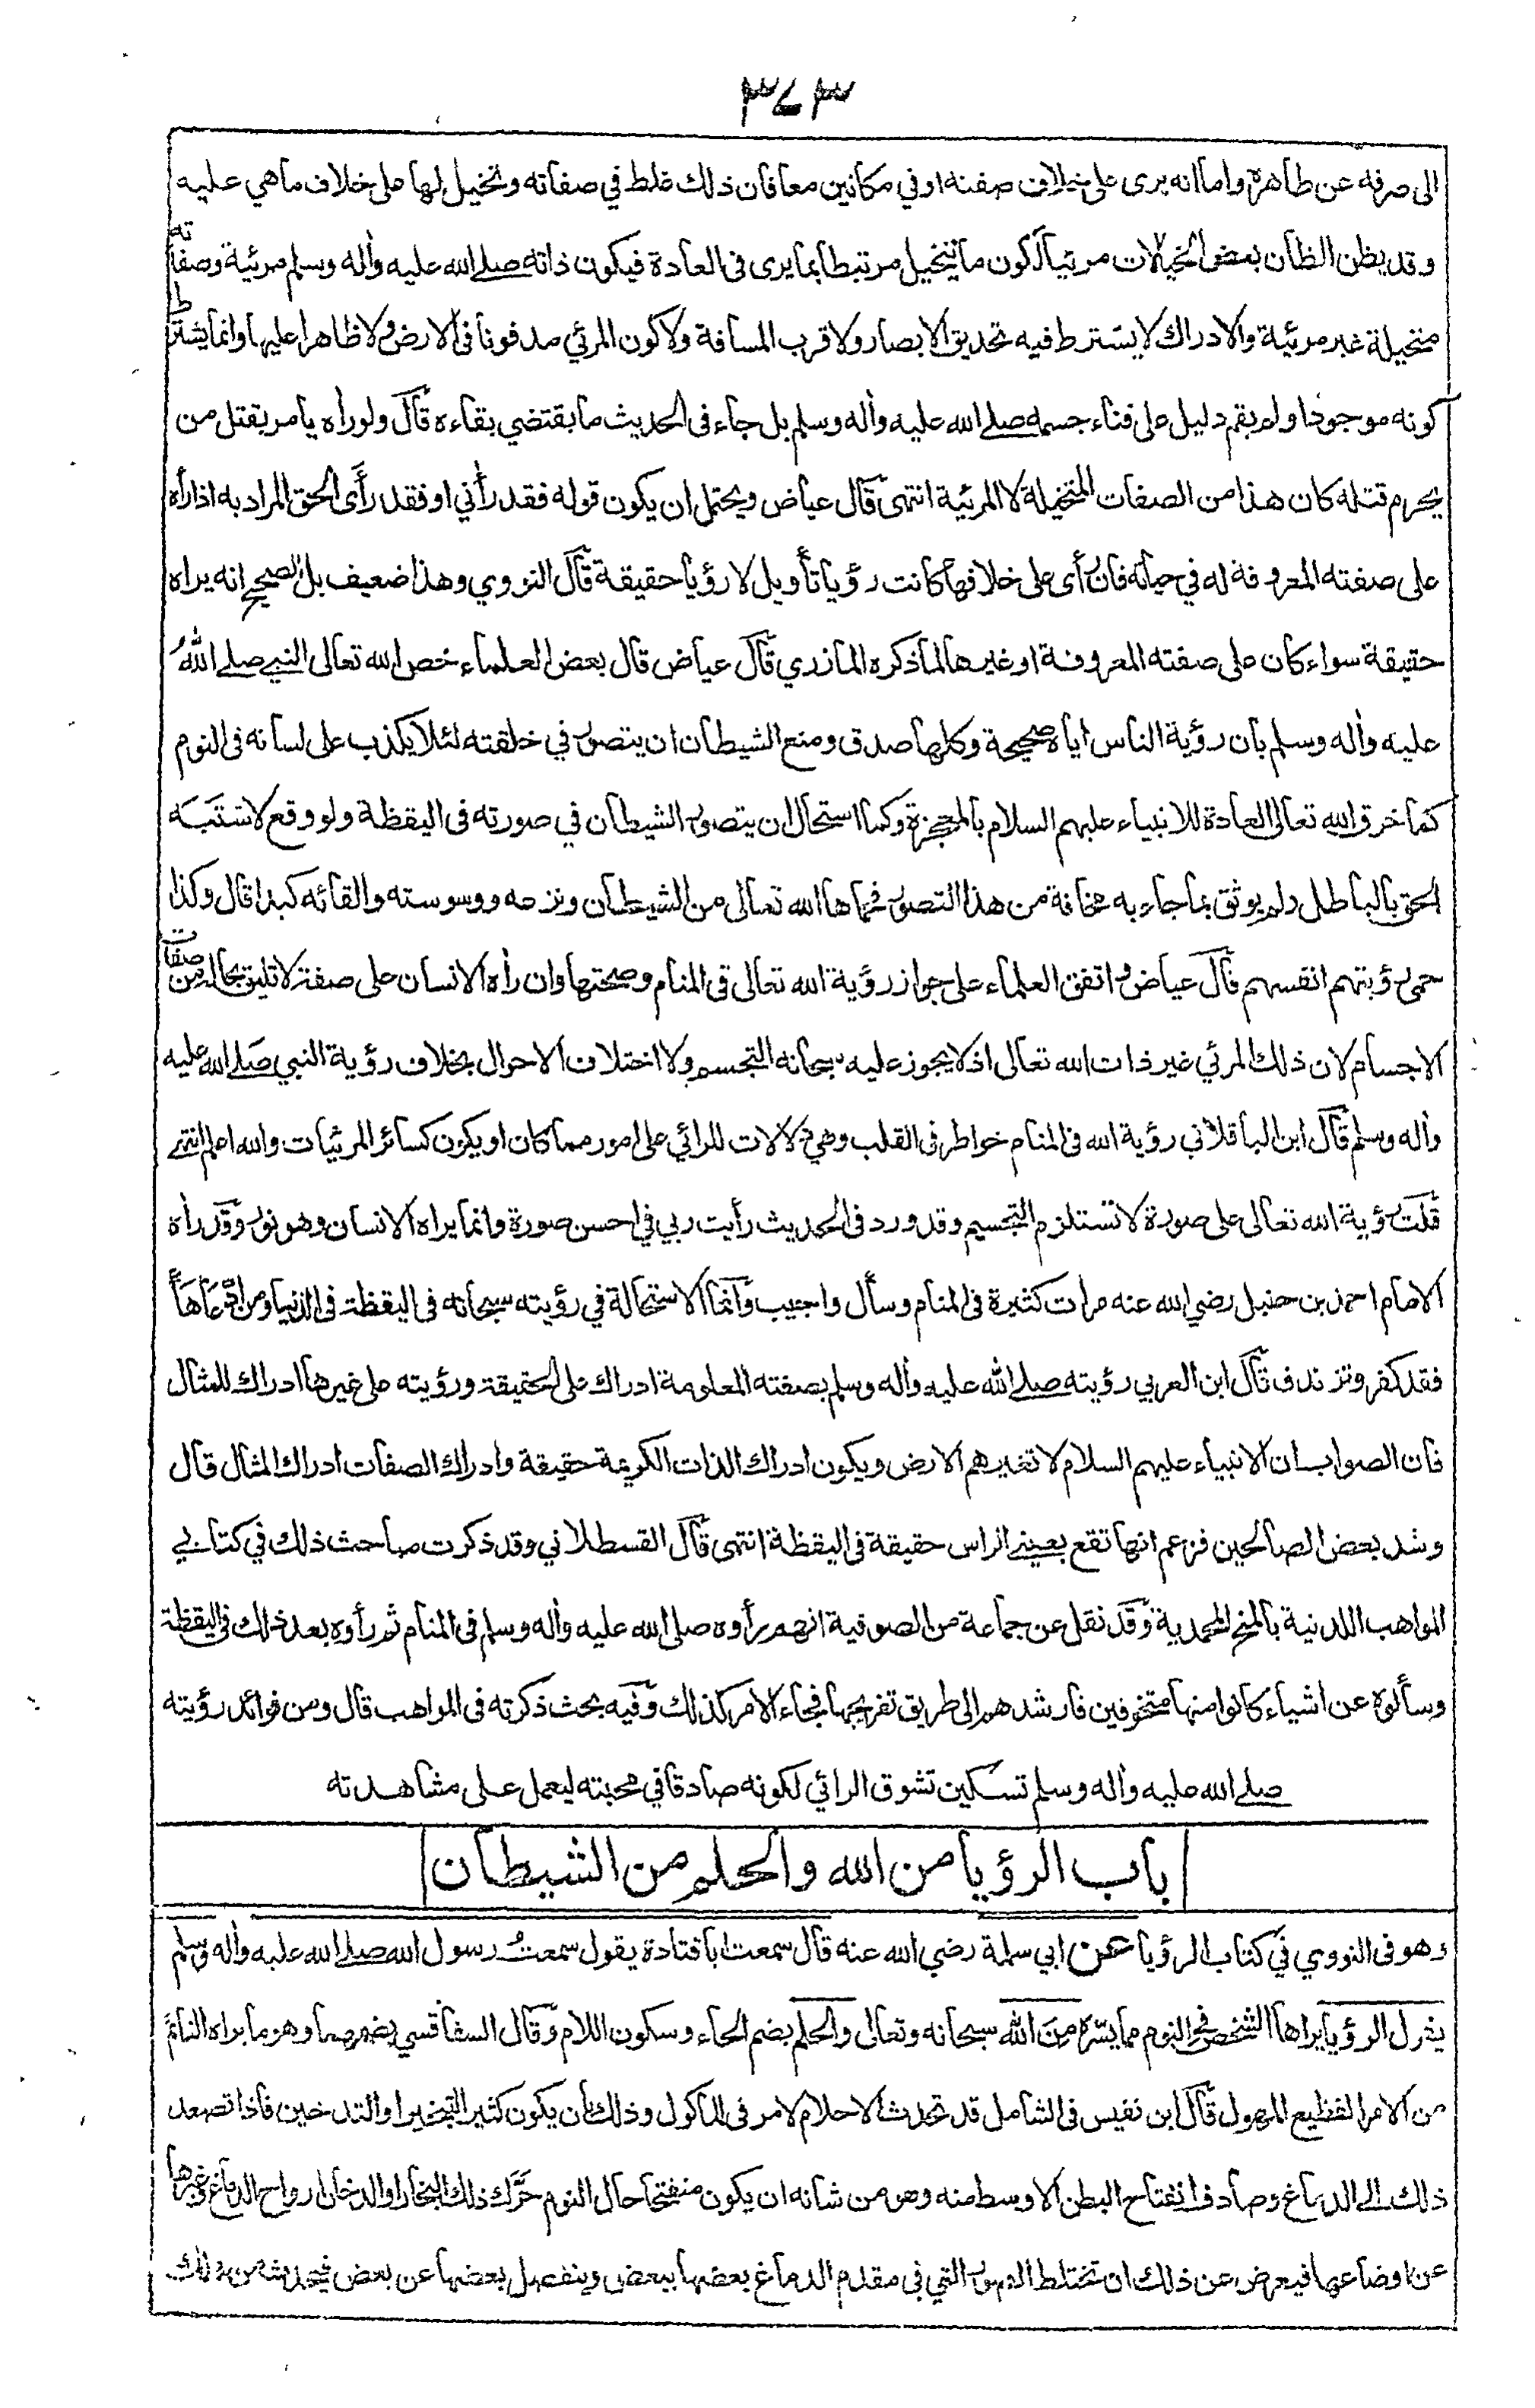 ٣٧٣
الى صرفه عن ظاهره واما انه يرى على خلاف صفته او في مكانين معا فان ذلك غلط في صفاته وتخيل لها على خلاف ما هي عليه
وقد يظن الظان بعض الخيالات مرئيا لكون ما يتخيل مرتبطا بما يرى فى العادة فيكون ذاته صلى الله عليه وأله وسلم مرئية وصفاته
متخيلة غير مرئية والادراك لا يشترط فيه تحديق الابصار ولا قرب المسافة ولا كون المرئي مدفونا فى الارض ولا ظاهرا عليها وانما يشترط
كونه موجودا ولم يقم دليل على فناء جسمه صلى الله عليه وأله وسلم بل جاء فى الحديث ما يقتضي بقاءه قال ولو رأه يامر بقتل من
يحرم قتله كان هذا من الصفات المتخيلة لا المرئية انتهى قال عياض ويحتمل ان يكون قوله فقد رأني او فقد رأى الحق المراد به اذا رأه
على صفته المعروفة له في حياته فان رأى على خلافها كانت رؤيا تأويل لا رؤيا حقيقة قال النووي وهذا ضعيف بل الصحيح انه يراه
حقيقة سواء كان على صفته المعروفة او غيرها لما ذكره المازري قال عياض قال بعض العلماء خص الله تعالى النبي صلى الله
عليه وأله وسلم بان رؤية الناس اياه صحيحة وكلها صدق ومنع الشيطان ان يتصور في خلقته لئلا يكذب على لسانه فى النوم
كما خرق الله تعالى العادة للانبياء عليهم السلام بالمعجزة وكما استحال ان يتصور الشيطان في صورته فى اليقظة ولو وقع لاشتبه
الحق بالباطل ولم يوثق بما جاء به مخافة من هذا التصور فحماها الله تعالى من الشيطان ونزعه ووسوسته والقائه كيدا قال وكذا
حمى رؤيتهم انفسهم قال عياض واتفق العلماء على جواز رؤية الله تعالى فى المنام وصحتها وان رأه الانسان على صفة لا تليق بحاله من صفات
الاجسام لان ذلك المرئي غير ذات الله تعالى اذ لا يجوز عليه سبحانه التجسم ولا اختلاف الاحوال بخلاف رؤية النبي صلى الله عليه
وأله وسلم قال ابن الباقلاني رؤية الله فى المنام خواطر فى القلب وهي دلالات للرائي على امور مما كان او يكون كسائر المرئيات والله اعلم انتهى
قلت رؤية الله تعالى على صورة لا تستلزم التجسيم وقد ورد فى الحديث رأيت ربي في احسن صورة وانما يراه الانسان وهو نور وقد رأه
الامام احمد بن حنبل رضي الله عنه مرات كثيرة فى المنام وسأل واجيب وانما الاستحالة في رؤيته سبحانه فى اليقظة فى الدنيا ومن ادعاها
فقد كفر وتزندق قال ابن العربي رؤيته صلى الله عليه وأله وسلم بصفته المعلومة ادراك على الحقيقة ورؤيته على غيرها ادراك للمثال
فان الصواب ان الانبياء عليهم السلام لا تغيرهم الارض ويكون ادراك الذات الكريمة حقيقة وادراك الصفات ادراك المثال قال
وشذ بعض الصالحين فزعم انها تقع بعيني الراس حقيقة فى اليقظة انتهى قال القسطلاني وقد ذكرت مباحث ذلك في كتابي
المواهب اللدنية بالمنح المحمدية وقد نقل عن جماعة من الصوفية انهم رأوه صلى الله عليه وأله وسلم فى المنام ثم رأوه بعد ذلك فى اليقظة
وسألوه عن اشياء كانوا منها متخوفين فارشدهم الى طريق تفريجها فجاء الامر كذلك وفيه بحث ذكرته فى المواهب قال ومن فوائد رؤيته
صلى الله عليه وأله وسلم تسكين تشوق الرائي لكونه صادقا في محبته ليعمل على مشاهدته
باب الرؤيا من الله والحلم من الشيطان
وهو فى النووي في كتاب الرؤيا عن ابي سلمة رضي الله عنه قال سمعت ابا قتادة يقول سمعت رسول الله صلى الله عليه وأله وسلم
يقول الرؤيا يراها الشخص فى النوم مما يسره من الله سبحانه وتعالى والحلم بضم الحاء وسكون اللام وقال السفاقسي بضمهما وهو ما يراه النائم
من الامر الفظيع المهول قال ابن نفيس فى الشامل قد تحدث الاحلام لامر فى الماكول وذلك بان يكون كثير التبخير او التدخين فاذا تصعد
ذلك الى الدماغ وصادف انفتاح البطن الاوسط منه وهو من شانه ان يكون منفتحا حال النوم حرك ذلك البخار او الدخان ارواح الدماغ وغيرها
عن اوضاعها فيعرض عن ذلك ان تختلط الصور التي في مقدم الدماغ بعضها ببعض وينفصل بعضها عن بعض فيحدث من ذلك